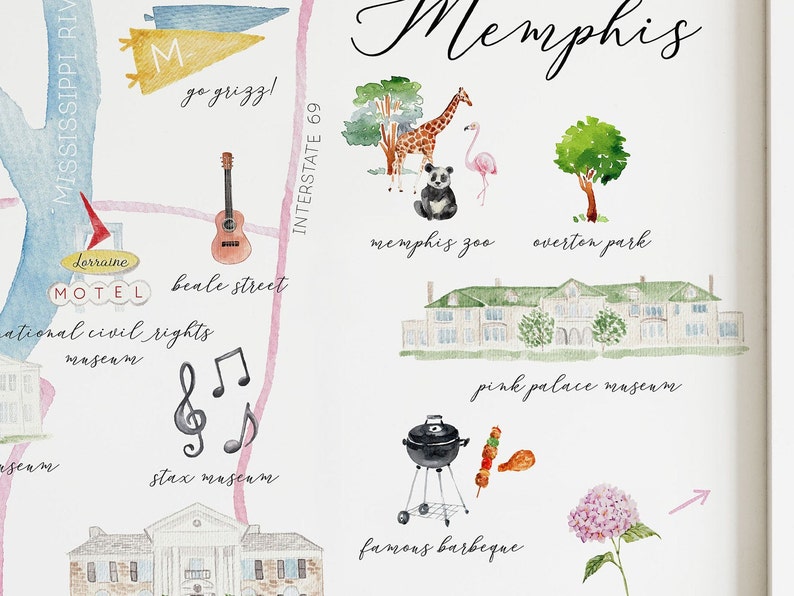 Memphis
MISSISSIPPI RIV
M
go grizz!
INTERSTATE 69
memphis zoo
overton park
Lorraine
MOTEL
beale street
national civil rights
museum
pink palace museum
useum
stax museum
famous barbeque